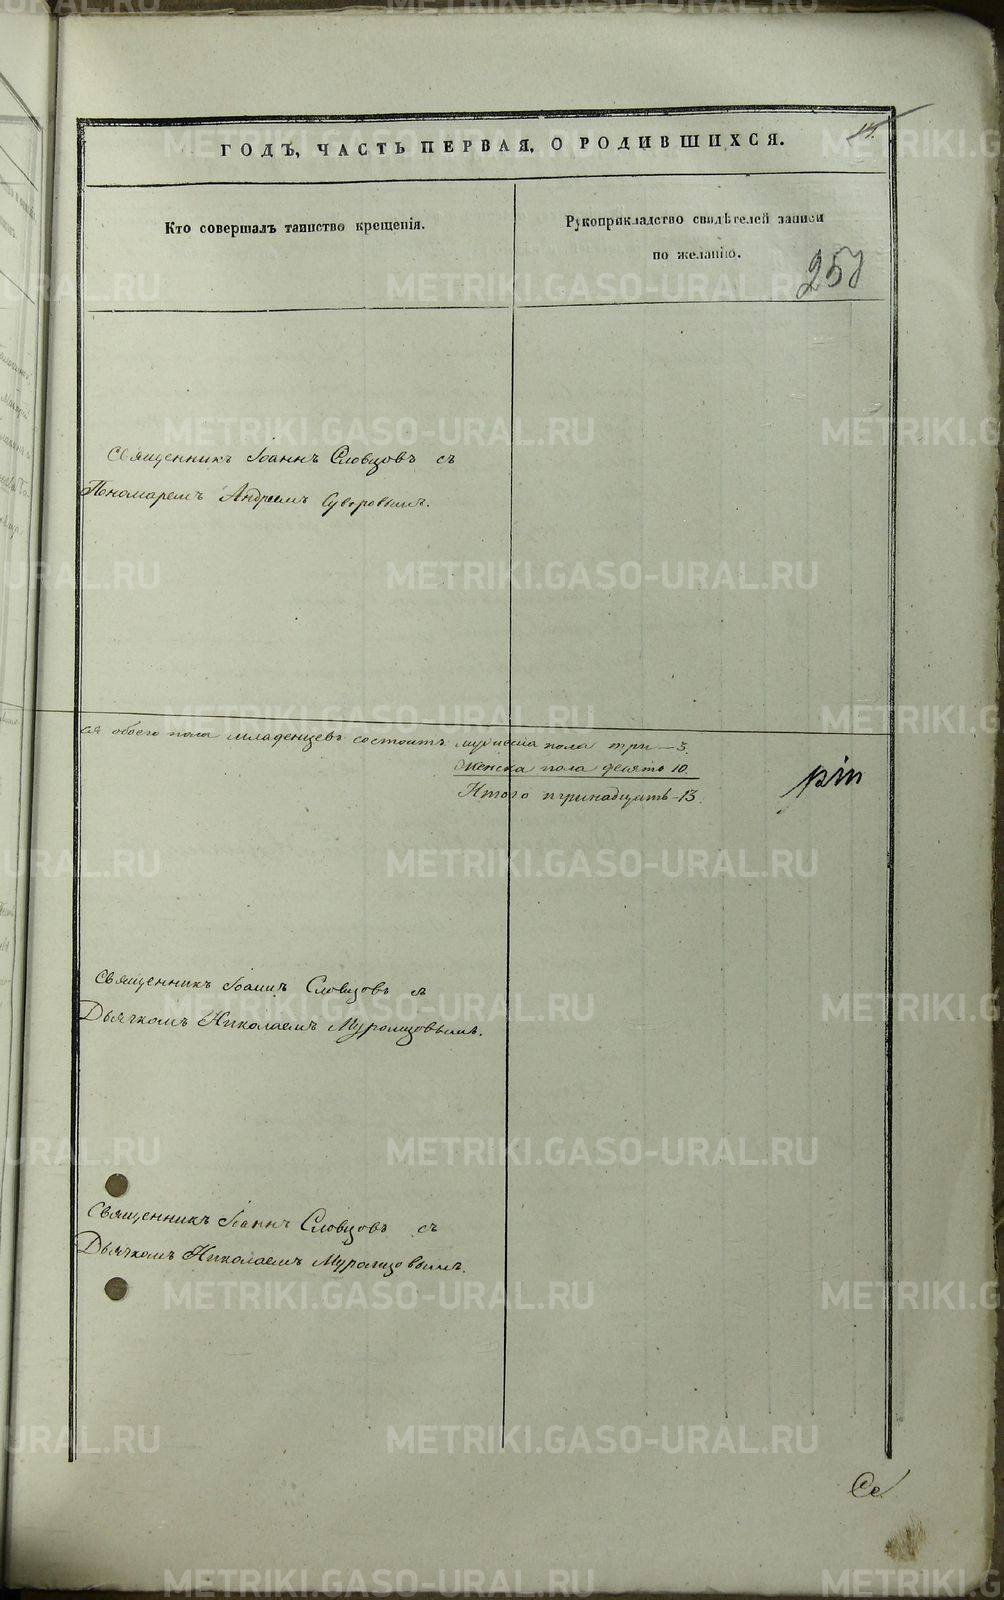 ГОДЪ, ЧАСТЬ ПЕРВАЯ, О РОДИВШИХСЯ.
Кто совершалъ таинство крещенія.
Рукоприкладство свидѣтелей записи
по желанію.
Священникъ Іоаннъ Словцовъ съ
Пономаремъ Андреемъ Суворовымъ.
ся обоего пола младенцевъ состоитъ мужеска пола три - 3.
Женска пола десять 10.
Итого тринадцать - 13.
Священникъ Іоаннъ Словцовъ съ
Дьячкомъ Николаемъ Муромцовымъ.
Священникъ Іоаннъ Словцовъ съ
Дьячкомъ Николаемъ Муромцовымъ.
METRIKI.GASO-URAL.RU